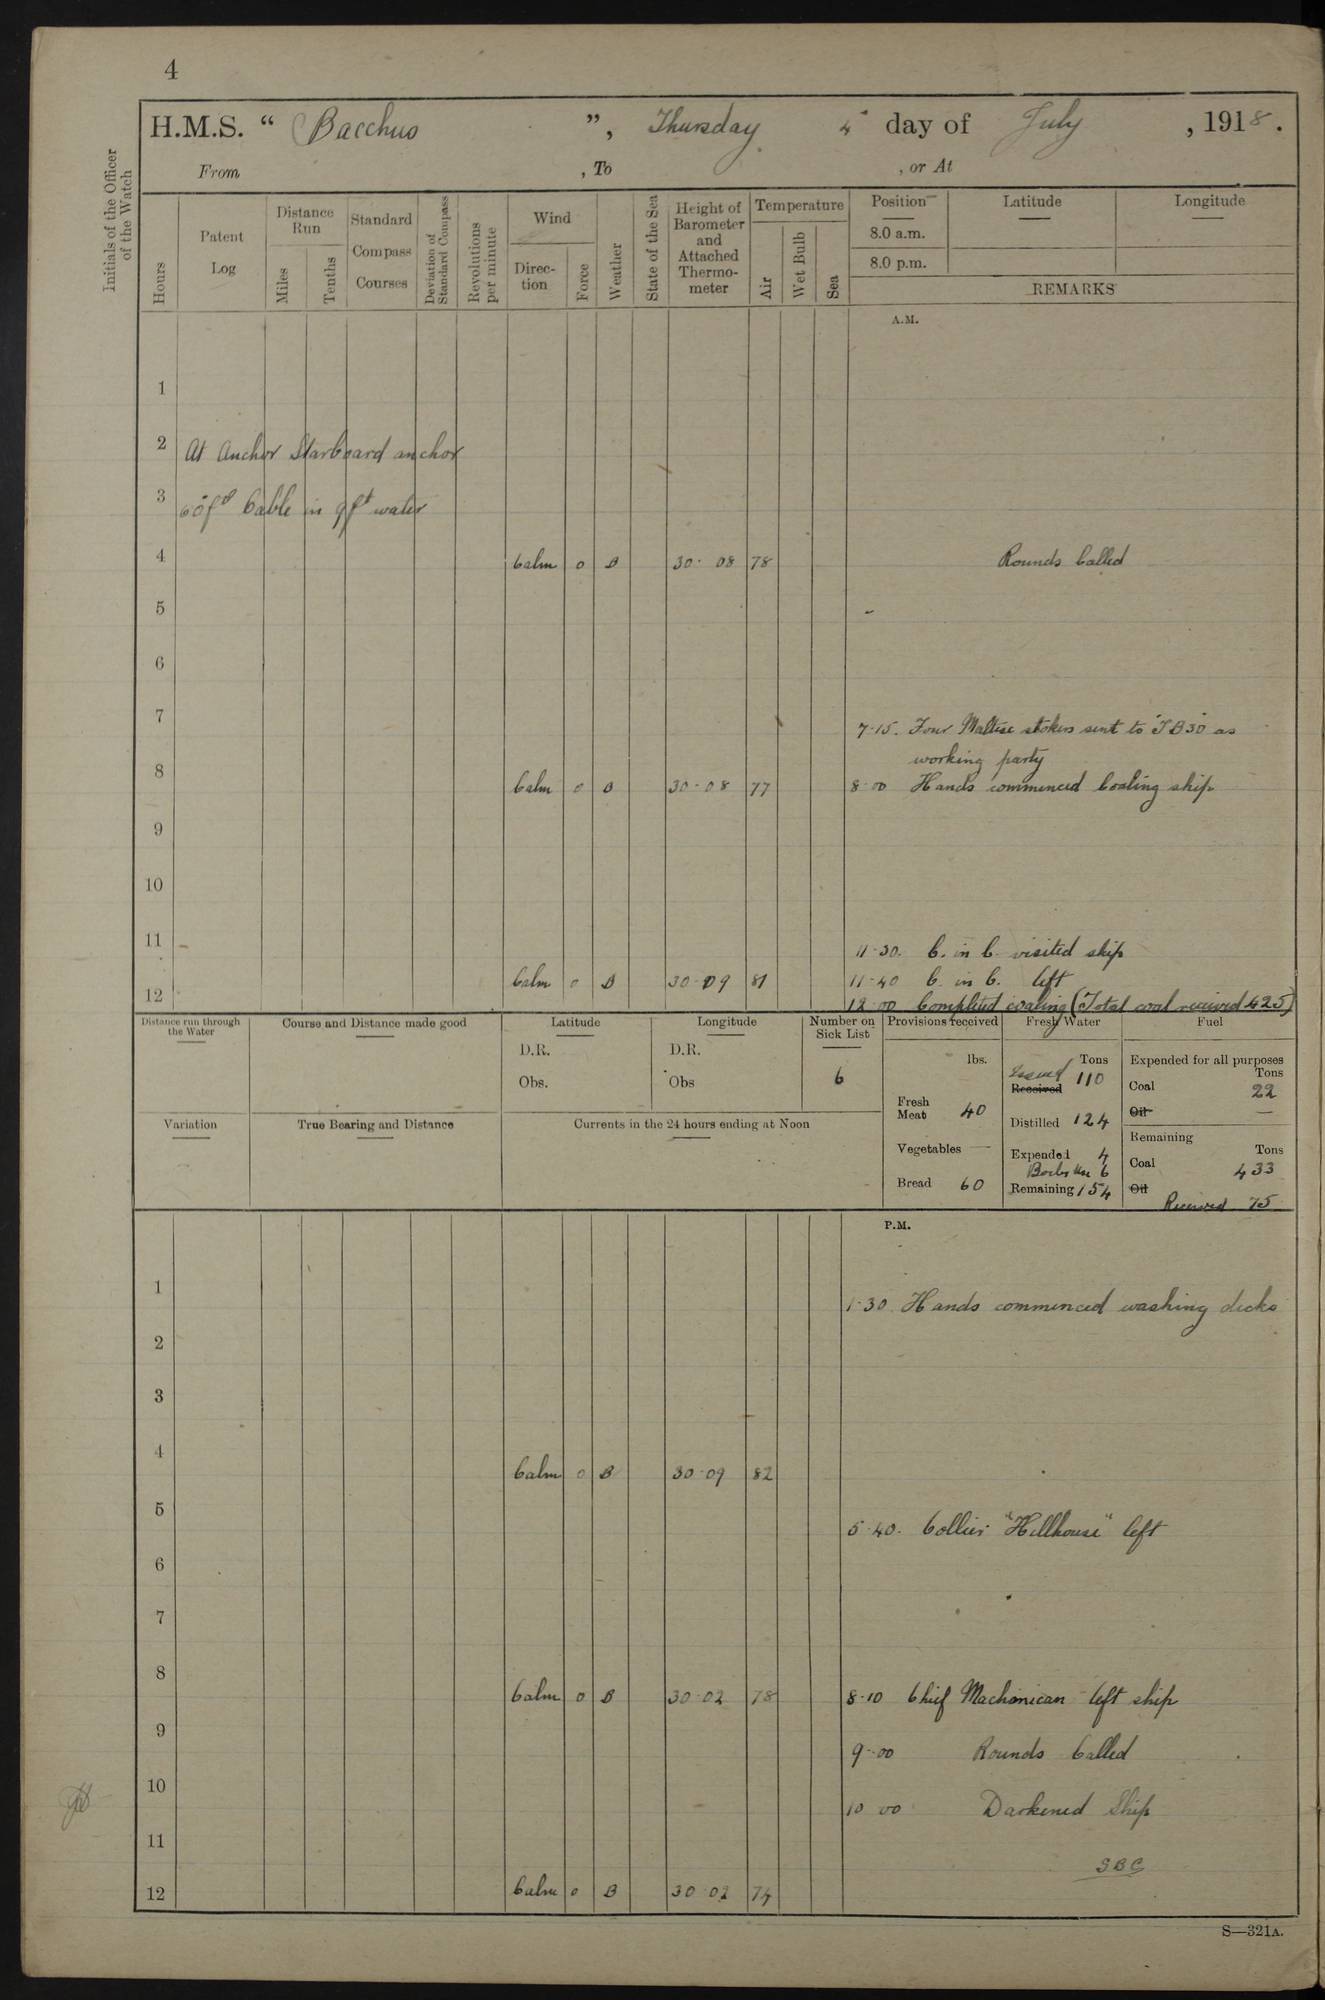 4
H.M.S. “ Bacchus ”, Thursday 4 day of July , 1918.
From , To , or At
Initials of the Officer of the Watch
Hours
Patent Log
Distance Run
Miles
Tenths
Standard Compass Courses
Deviation of Standard Compass
Revolutions per minute
Wind
Direction
Force
Weather
State of the Sea
Height of Barometer and Attached Thermometer
Temperature
Air
Wet Bulb
Sea
Position
8.0 a.m.
8.0 p.m.
Latitude
Longitude
REMARKS
A.M.
1
2 At Anchor Starboard anchor
3 Cable in 9 ft water
4 Calm 0 B 30·08 78 Rounds Called
5
6
7 7-15. Four Maltese stokers sent to "TB30" as
working party
8 Calm 0 B 30·08 77 8-00 Hands commenced Coaling ship
9
10
11 11-30. C. in C. visited ship
12 Calm 0 B 30·09 81 11-40 C. in C. left
12-00 Completed coaling (Total coal received 425)
Distance run through the Water
Course and Distance made good
Latitude
D.R.
Obs.
Longitude
D.R.
Obs
Number on Sick List
6
Variation
True Bearing and Distance
Currents in the 24 hours ending at Noon
Provisions received
lbs.
Fresh Meat 40
Vegetables —
Bread 60
Fresh Water
Tons
Issued
Received 110
Distilled 124
Expended 4
6
Remaining 154
Fuel
Expended for all purposes
Tons
Coal 22
Oil —
Remaining
Tons
Coal 433
Oil
Received 75
P.M.
1 1-30 Hands commenced washing decks
2
3
4 Calm 0 B 30·09 82
5 5-40. Collier "Hillhouse" left
6
7
8 Calm 0 B 30·02 78 8-10 Chief Machanican left ship
9 9-00 Rounds Called
10 10 00 Darkened Ship
11
SBC
12 Calm 0 B 30 02 74
S—321A.